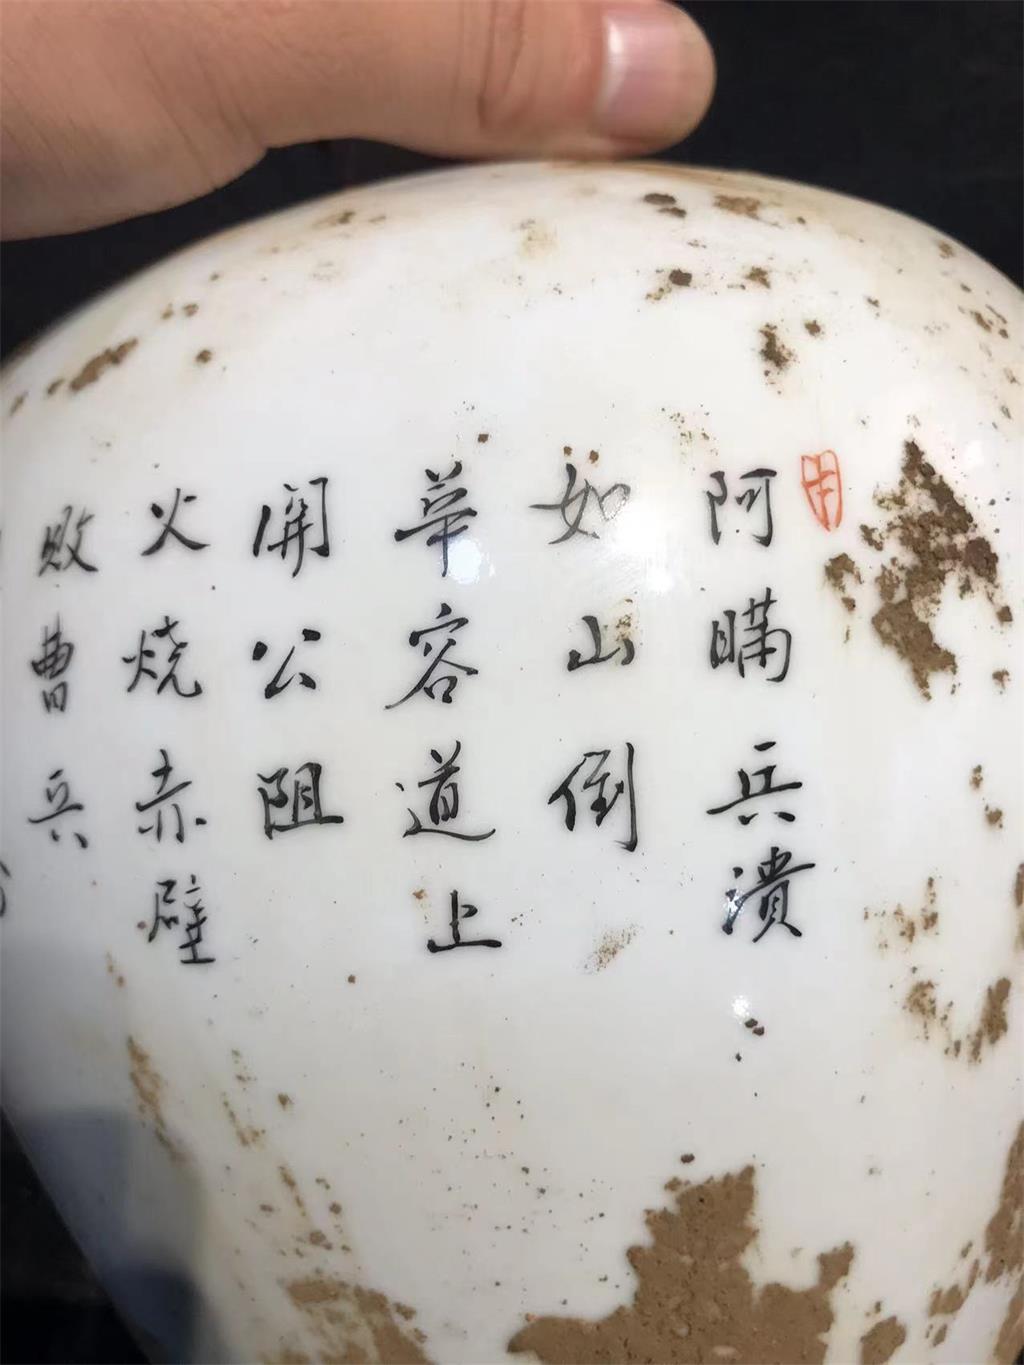 阿瞒兵潰
如山倒
華容道上
開公阻
火烧赤壁
败曹兵